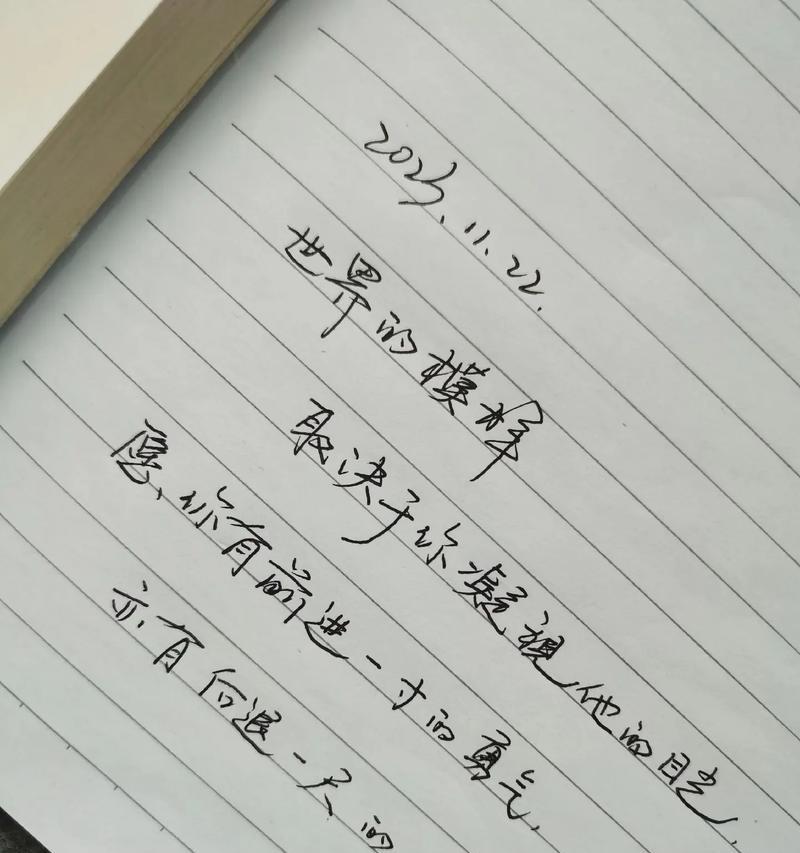 2023.11.22.
世界的模样
取决于你凝视他的目光.
愿、你有前进一寸的勇气.
亦有向退一尺的